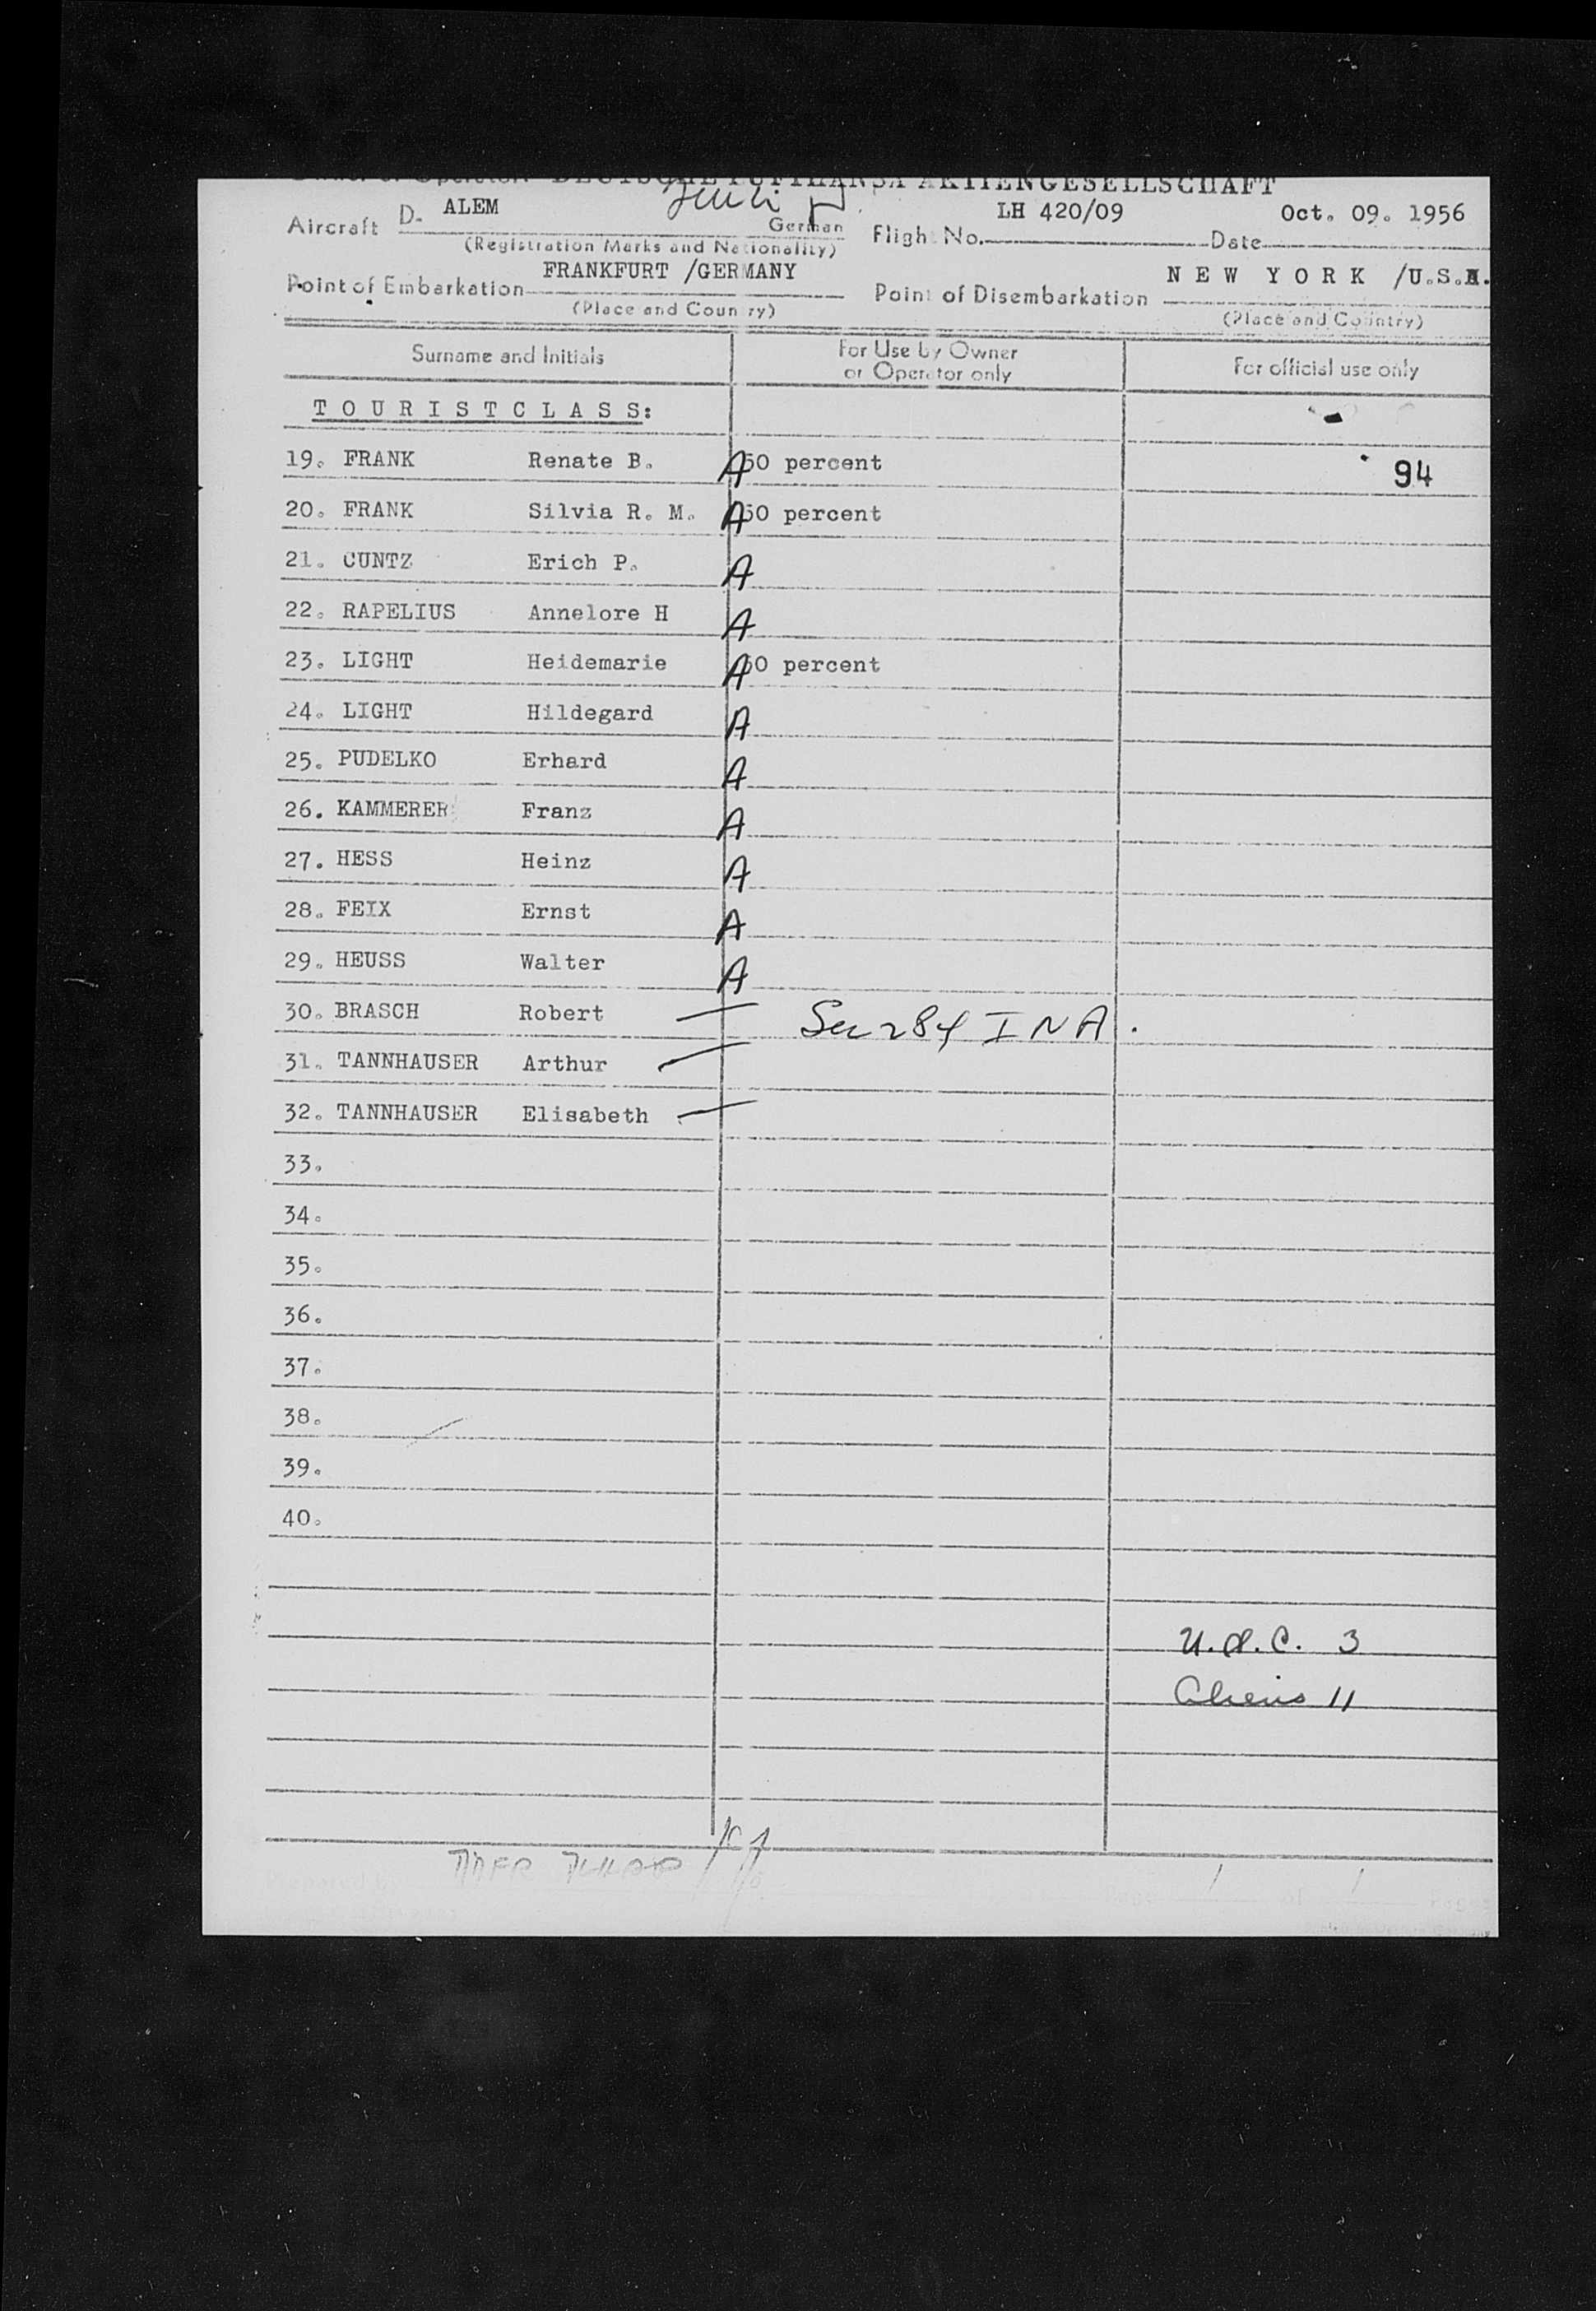 DEUTSCHE LUFTHANSA AKTIENGESELLSCHAFT
Aircraft D- ALEM German Flight No. LH 420/09 Date Oct. 09. 1956
(Registration Marks and Nationality)
Point of Embarkation FRANKFURT /GERMANY Point of Disembarkation N E W Y O R K /U.S.A.
(Place and Country) (Place and Country)
Surname and Initials For Use by Owner or Operator only For official use only
T O U R I S T C L A S S:
19. FRANK Renate B. A 50 percent 94
20. FRANK Silvia R. M. A 50 percent
21. CUNTZ Erich P. A
22. RAPELIUS Annelore H A
23. LIGHT Heidemarie A 50 percent
24. LIGHT Hildegard A
25. PUDELKO Erhard A
26. KAMMERER Franz A
27. HESS Heinz A
28. FEIX Ernst A
29. HEUSS Walter A
30. BRASCH Robert — Sec 284 I N A.
31. TANNHAUSER Arthur —
32. TANNHAUSER Elisabeth —
33.
34.
35.
36.
37.
38.
39.
40.
U.S.C. 3
Aliens 11
Prepared by Page 1 of 1 Pages